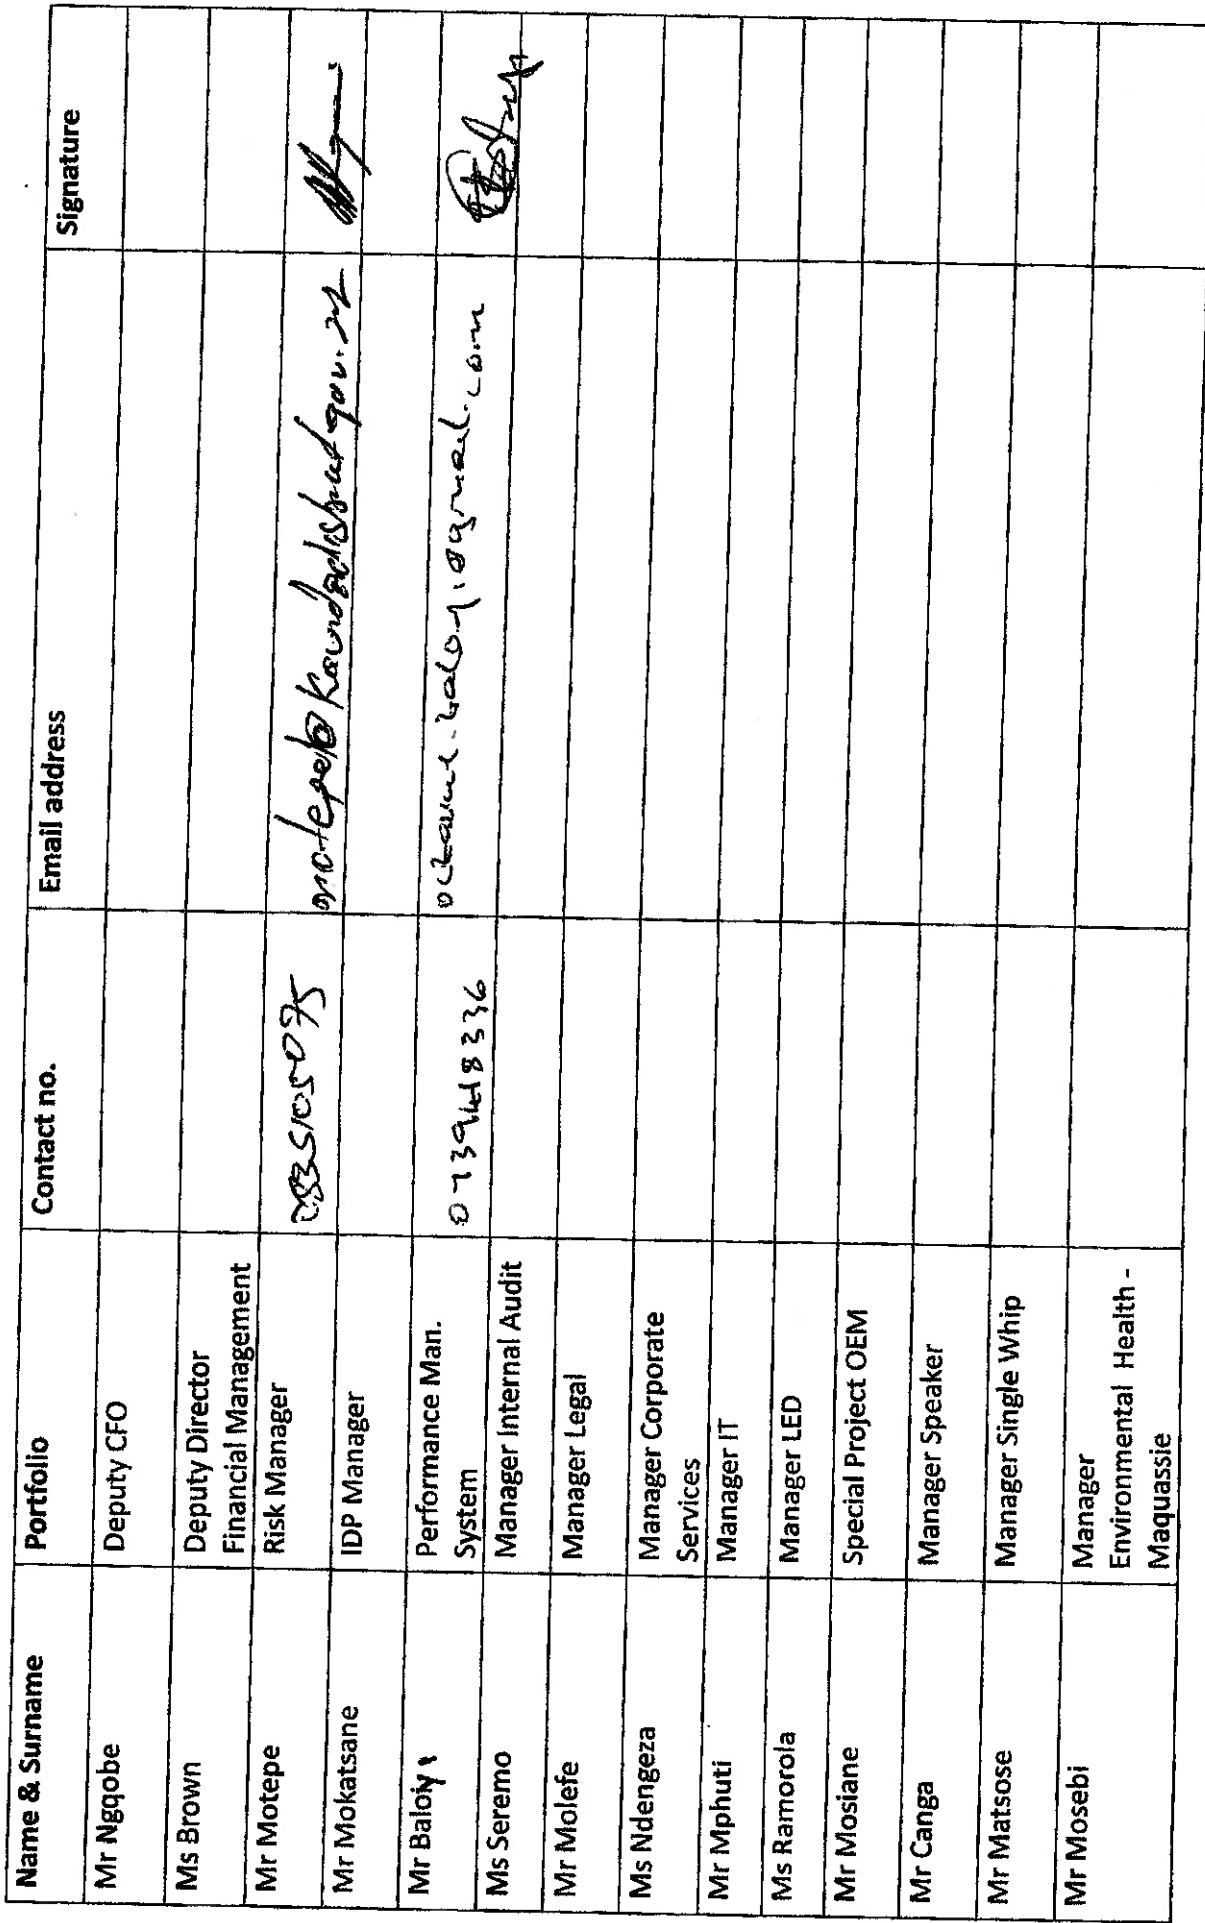 Name & Surname Portfolio Contact no. Email address Signature
Mr Ngqobe Deputy CFO
Ms Brown Deputy Director
Financial Management
Mr Motepe Risk Manager 0835105075
Mr Mokatsane IDP Manager
Mr Baloyi Performance Man.
System 0739448336
Ms Seremo Manager Internal Audit
Mr Molefe Manager Legal
Ms Ndengeza Manager Corporate
Services
Mr Mphuti Manager IT
Ms Ramorola Manager LED
Mr Mosiane Special Project OEM
Mr Canga Manager Speaker
Mr Matsose Manager Single Whip
Mr Mosebi Manager
Environmental Health -
Maquassie